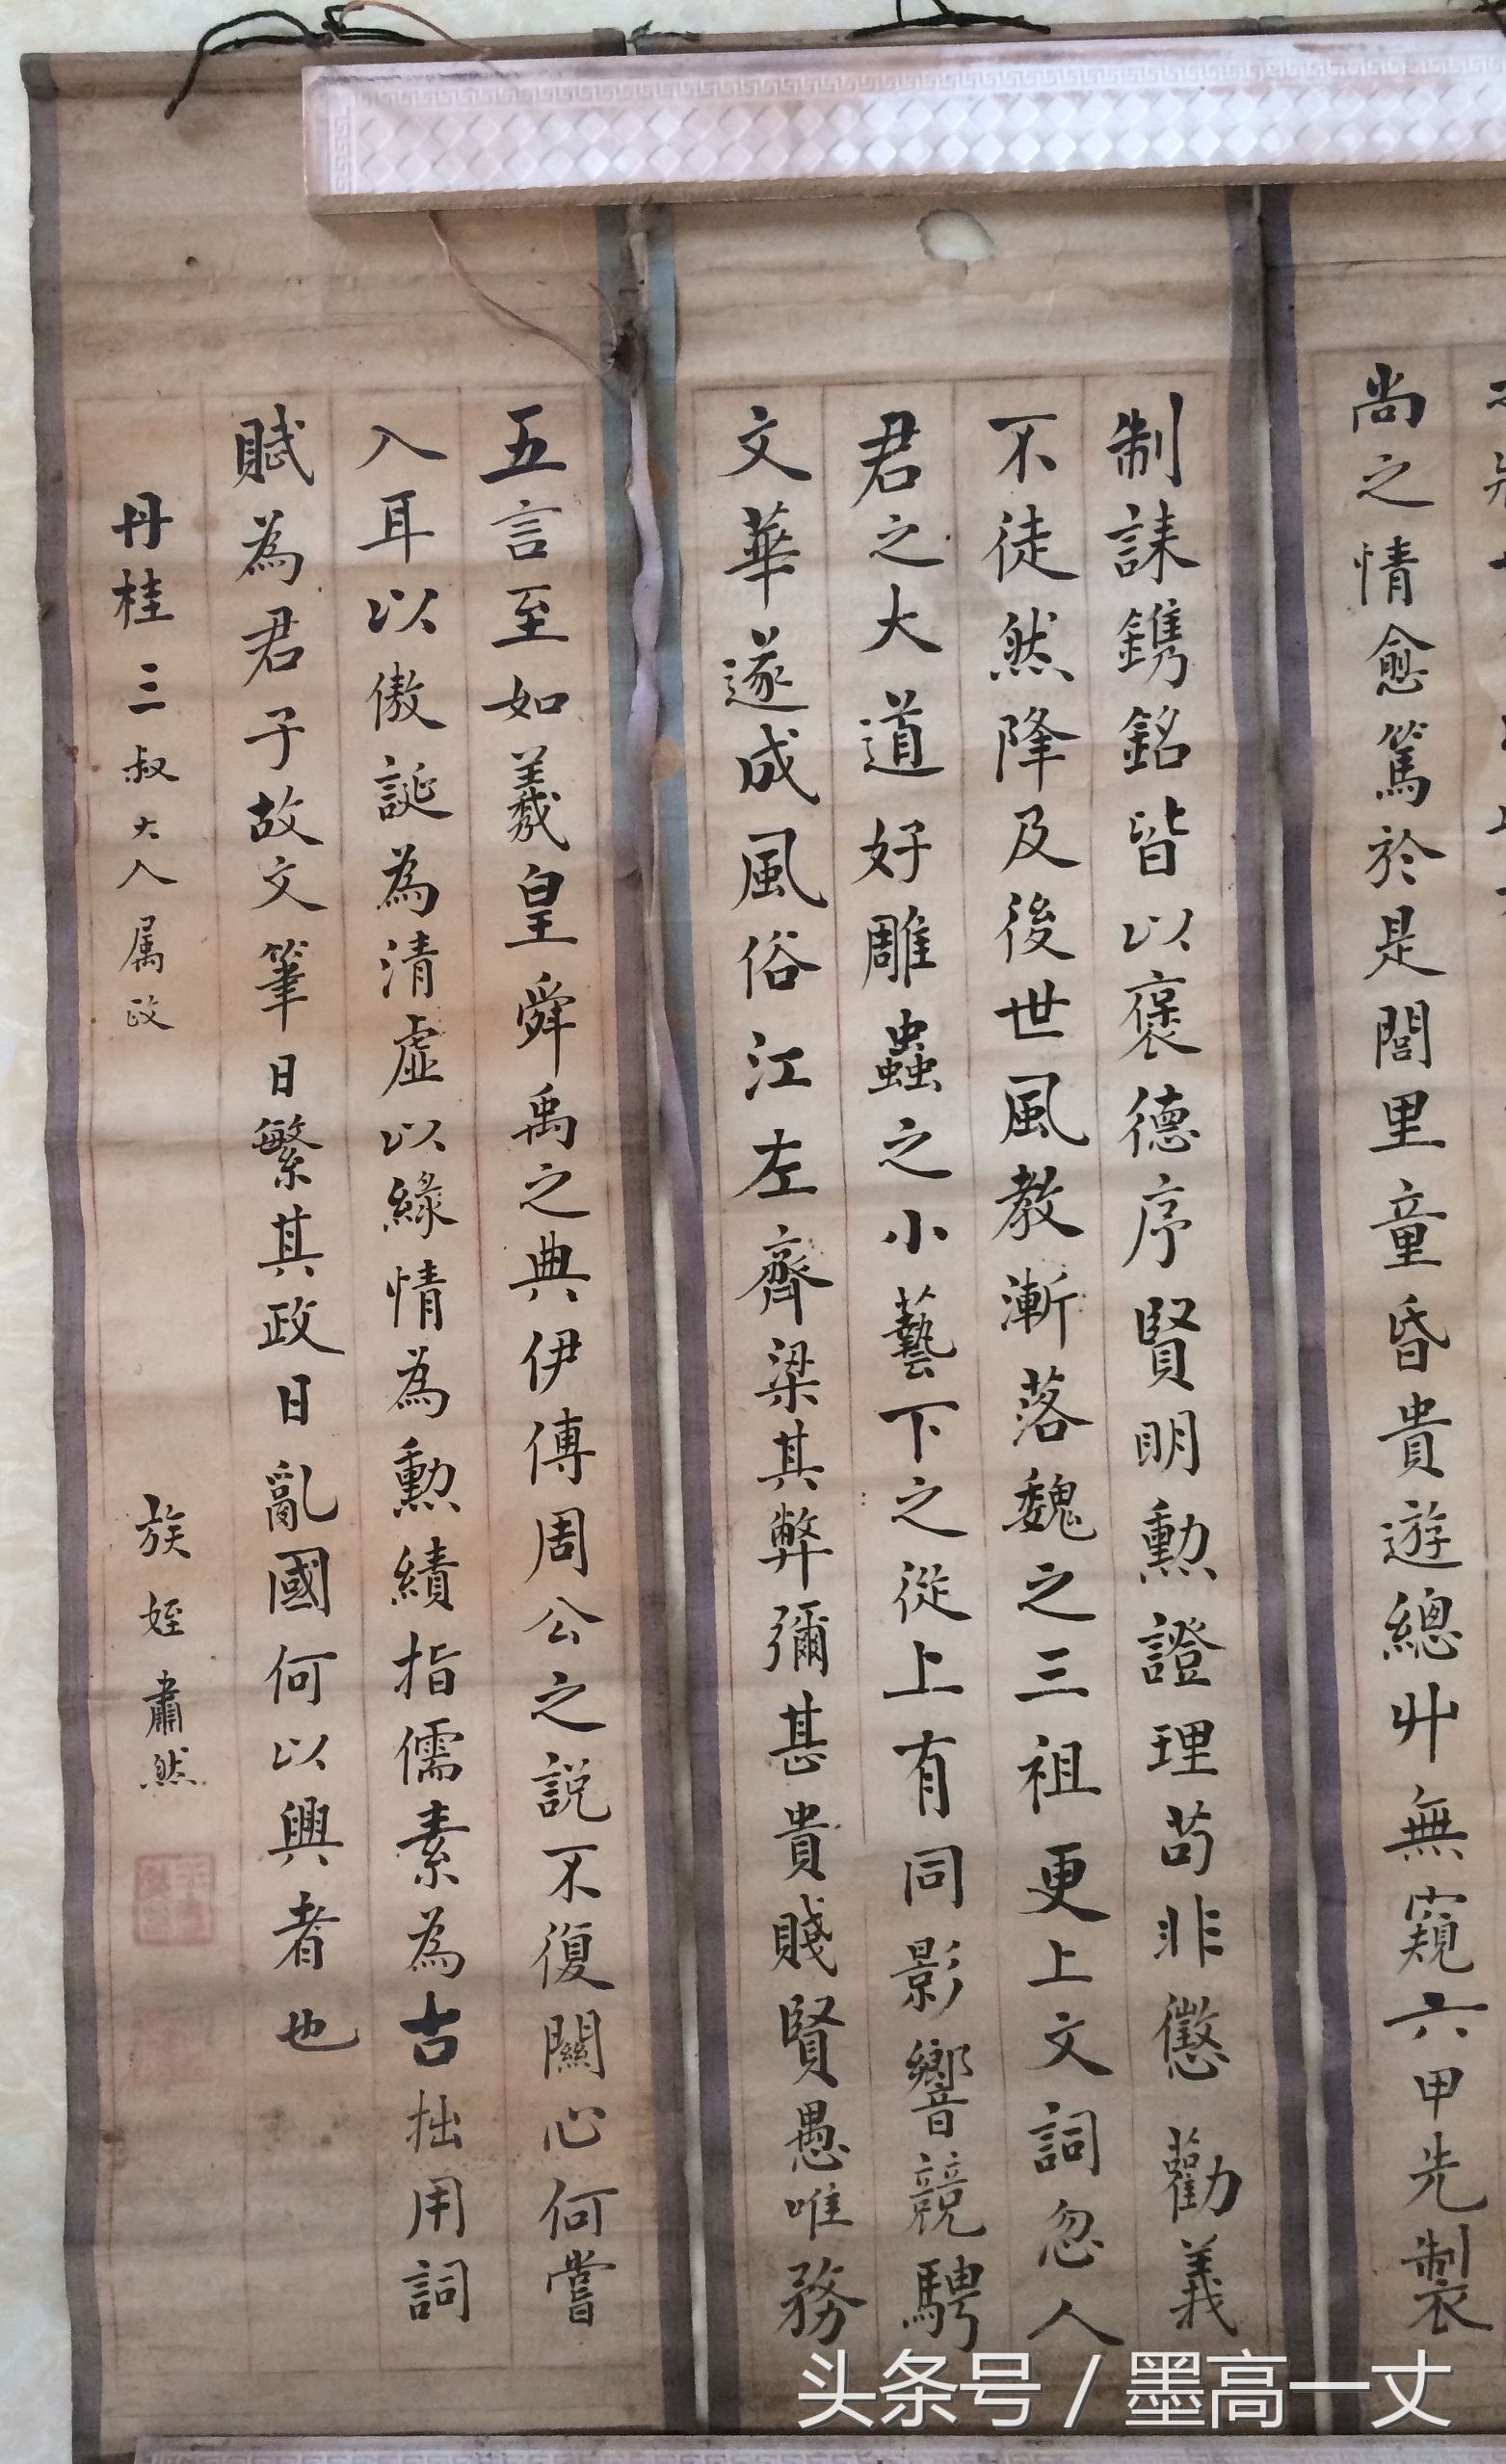 尚之情愈篤於是閭里童昏貴遊總丱無窺六甲先製
制誄鐫銘皆以褒德序賢明勲證理苟非懲勸義
不徒然降及後世風教漸落魏之三祖更上文詞忽人
君之大道好雕蟲之小藝下之從上有同影響競騁
文華遂成風俗江左齊梁其弊彌甚貴賤賢愚唯務
五言至如羲皇舜禹之典伊傅周公之說不復關心何嘗
入耳以傲誕為清虛以緣情為勲績指儒素為古拙用詞
賦為君子故文筆日繁其政日亂國何以興者也
丹桂三叔大人属政
族姪肅然
头条号 / 墨高一丈